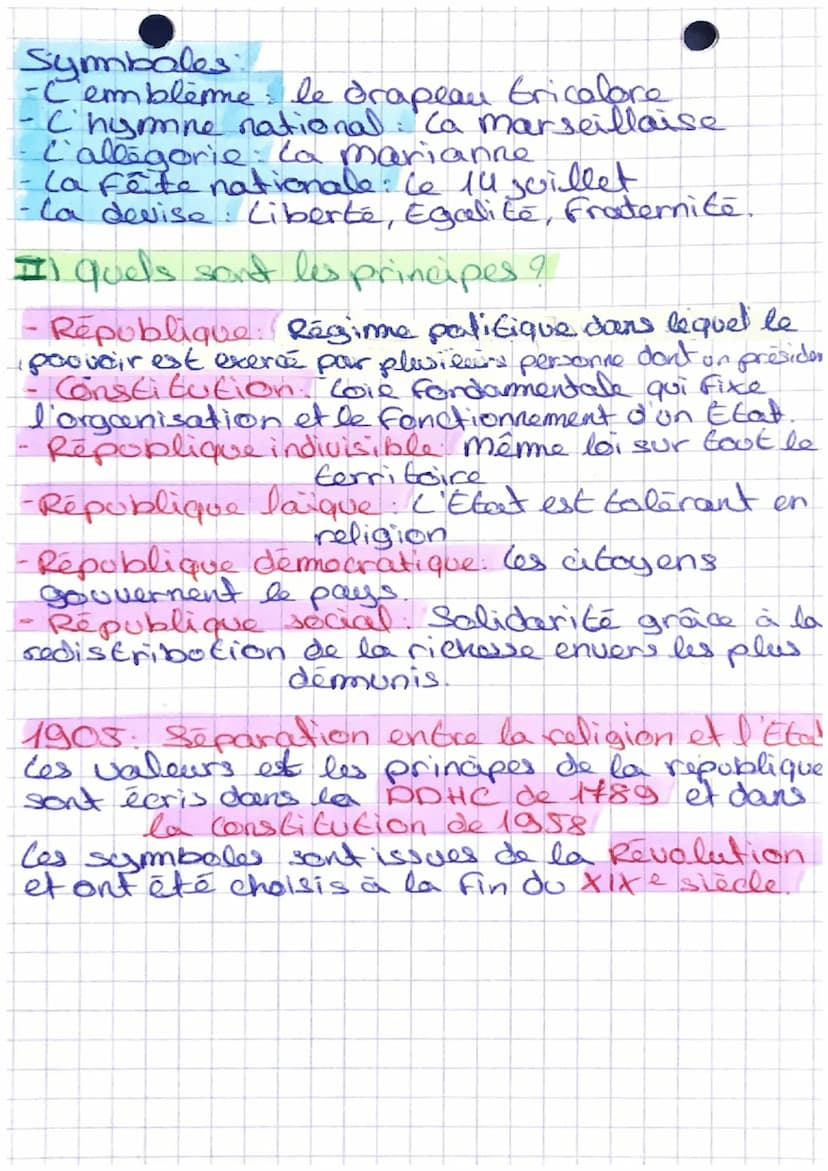 Symboles:
- L'emblème : le drapeau tricolore
- L'hymne national : La marseillaise
- L'allégorie : La marianne
- La fête nationale : Le 14 juillet
- La devise : Liberté, Egalité, Fraternité.
II) Quels sont les principes ?
- République : Régime politique dans lequel le
pouvoir est exercé par plusieurs personne dont un présiden
- Constitution : Loie fondammentale qui fixe
l'organisation et le fonctionnement d'un Etat.
- République indivisible : même loi sur tout le
territoire
- République laïque : L'Etat est tolérant en
religion
- République démocratique : Les citoyens
gouvernent le pays.
- République social : Solidarité grâce à la
redistribution de la richesse envers les plus
démunis.
1905 : Séparation entre la religion et l'Etat
Les valeurs est les principes de la république
sont écris dans la DDHC de 1789 et dans
la constitution de 1958
Les symboles sont issues de la Révolution
et ont été choisis à la fin du XIXe siècle.